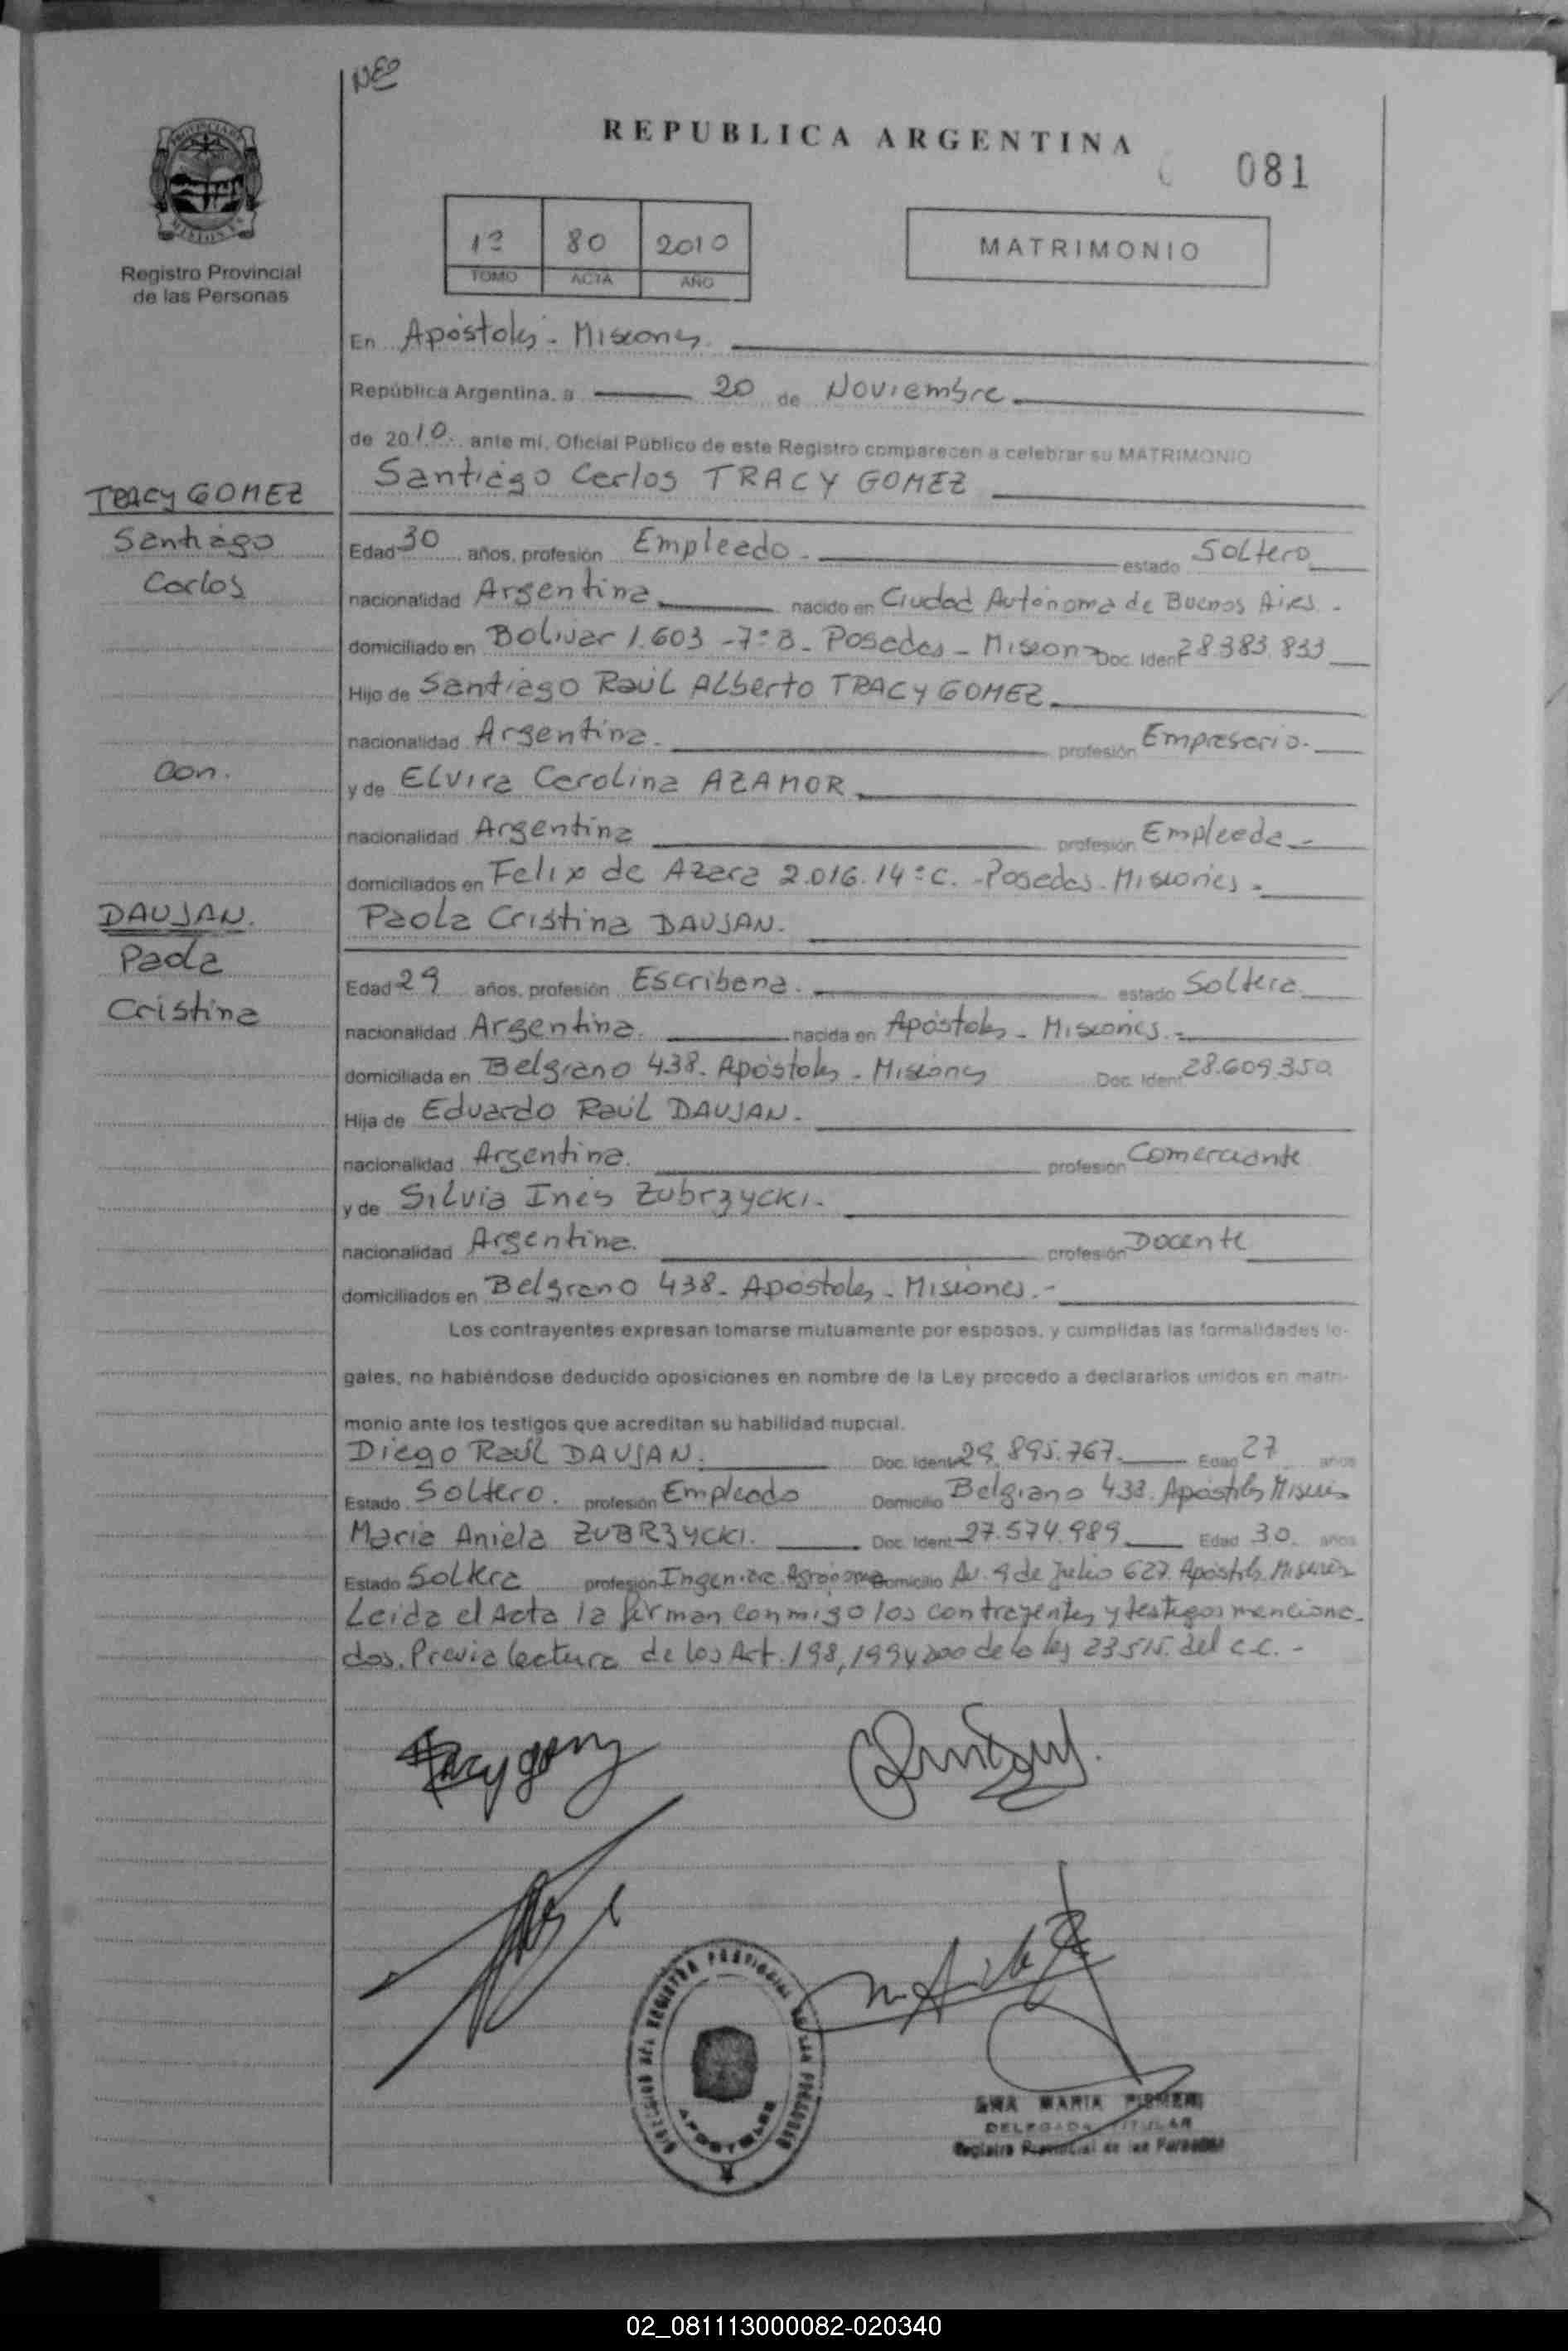 NEº
REPUBLICA ARGENTINA
081
PROVINCIA DE
MISIONES
Registro Provincial
de las Personas
1º 80 2010
TOMO ACTA AÑO
MATRIMONIO
En Apóstoles - Misiones.
República Argentina, a 20 de Noviembre
de 2010. ante mi, Oficial Público de este Registro comparecen a celebrar su MATRIMONIO
TRACY GOMEZ
Santiago Carlos TRACY GOMEZ
Santiago
Edad 30 años, profesión Empleado. estado Soltero
Carlos
nacionalidad Argentina nacido en Ciudad Autónoma de Buenos Aires.
domiciliado en Bolivar 1.603 - 7º B - Posadas - Misiones Doc. Ident 28.383.833
Hijo de Santiago Raúl Alberto TRACY GOMEZ.
nacionalidad Argentina. profesión Empresario.
con.
y de Elvira Carolina AZAMOR
nacionalidad Argentina profesión Empleada
domiciliados en Felix de Azara 2.016. 14º C. - Posadas - Misiones.
DAUJAN.
Paola Cristina DAUJAN.
Paola
Cristina
Edad 29 años, profesión Escribana. estado Soltera
nacionalidad Argentina. nacida en Apóstoles - Misiones.
domiciliada en Belgrano 438. Apóstoles - Misiones Doc. Ident 28.609.350
Hija de Eduardo Raúl DAUJAN.
nacionalidad Argentina. profesión Comerciante
y de Silvia Inés Zubrzycki.
nacionalidad Argentina. profesión Docente
domiciliados en Belgrano 438 - Apóstoles - Misiones.-
Los contrayentes expresan tomarse mutuamente por esposos, y cumplidas las formalidades le-
gales, no habiéndose deducido oposiciones en nombre de la Ley procedo a declararlos unidos en matri-
monio ante los testigos que acreditan su habilidad nupcial.
Diego Raúl DAUJAN. Doc. Ident 29.895.767. Edad 27 años
Estado Soltero. profesión Empleado Domicilio Belgrano 438. Apóstoles Misiones
Maria Aniela ZUBRZYCKI. Doc. Ident 27.574.989 Edad 30. años
Estado Soltera profesión Ingeniera Agrónoma Domicilio Av. 9 de Julio 627. Apóstoles Misiones
Leida el Acta la firman conmigo los contrayentes y testigos menciona-
dos. Previa lectura de los Art. 198, 199 y 200 de la ley 23.515. del C.C. -
APOSTOLES
MARIA
DELEGADA TITULAR
Registro Provincial de las Personas
02_081113000082-020340